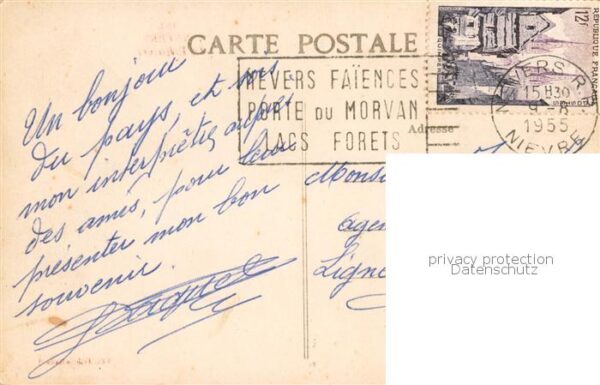 CARTE POSTALE
RÉPUBLIQUE FRANÇAISE
12F
NEVERS FAÏENCES
PORTE DU MORVAN
LACS FORETS
NEVERS R.P.
15H30
1955
NIEVRE
Adresse
Un bonjour
du pays, et sois
mon interprète auprès
des amis, pour leur
présenter mon bon
souvenir.
Monsi
agen
Ligne
privacy protection
Datenschutz